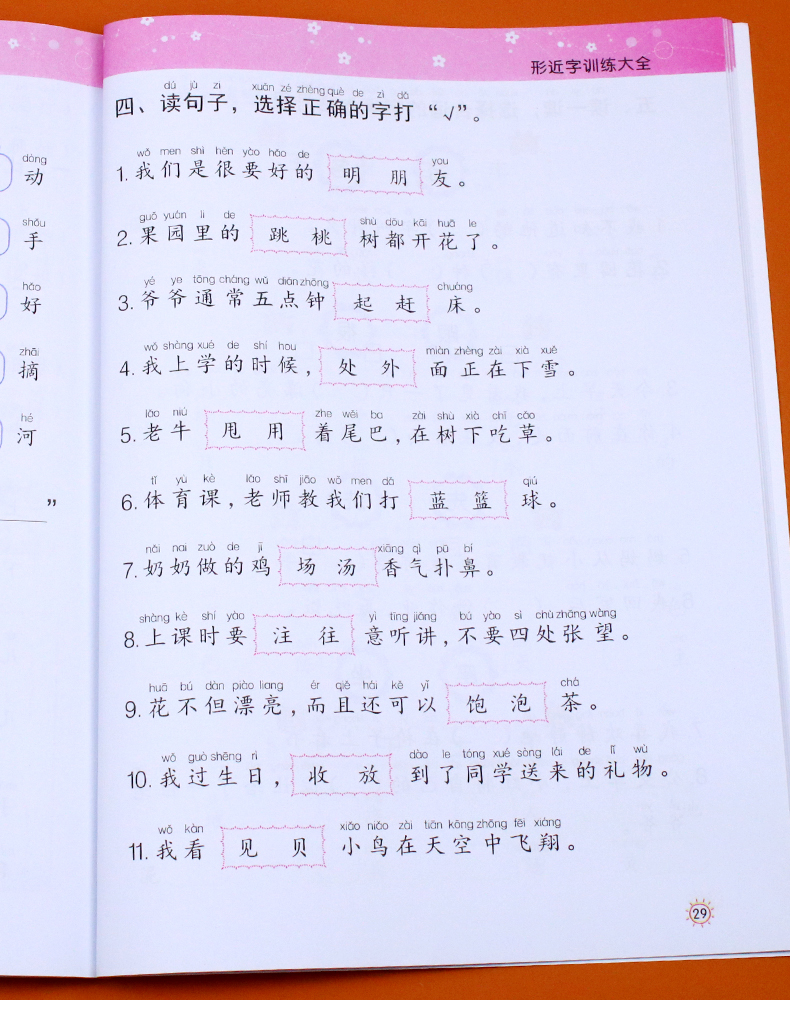 形近字训练大全
dòng
动
shǒu
手
hǎo
好
zhāi
摘
hé
河
”
dú jù zi xuǎn zé zhèng què de zì dǎ
四、读句子，选择正确的字打“√”。
wǒ men shì hěn yào hǎo de you
1. 我们是很要好的 明 朋 友。
guǒ yuán li de shù dōu kāi huā le
2. 果园里的 跳 桃 树都开花了。
yé ye tōng cháng wǔ diǎn zhōng chuáng
3. 爷爷通常五点钟 起 赶 床。
wǒ shàng xué de shí hou miàn zhèng zài xià xuě
4. 我上学的时候，处 外 面正在下雪。
lǎo niú zhe wěi ba zài shù xià chī cǎo
5. 老牛 甩 用 着尾巴，在树下吃草。
tǐ yù kè lǎo shī jiāo wǒ men dǎ qiú
6. 体育课，老师教我们打 蓝 篮 球。
nǎi nai zuò de jī xiāng qì pū bí
7. 奶奶做的鸡 场 汤 香气扑鼻。
shàng kè shí yào yì tīng jiǎng bú yào sì chù zhāng wàng
8. 上课时要 注 往 意听讲，不要四处张望。
huā bú dàn piào liang ér qiě hái kě yǐ chá
9. 花不但漂亮，而且还可以 饱 泡 茶。
wǒ guò shēng rì dào le tóng xué sòng lái de lǐ wù
10. 我过生日，收 放 到了同学送来的礼物。
wǒ kàn xiǎo niǎo zài tiān kōng zhōng fēi xiáng
11. 我看 见 贝 小鸟在天空中飞翔。
29